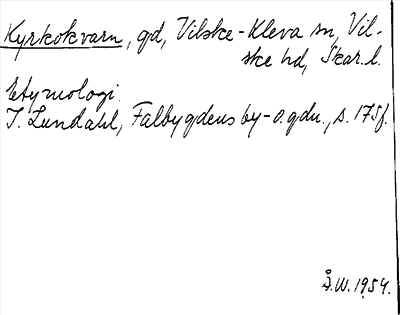 Kyrkokvarn, gd, Vilske-Kleva sn, Vil-
ske hd, Skar.l.
Etymologi.
I. Lundahl, Falbygdens by-o.gdn., s. 175f.
Å.W. 1954.